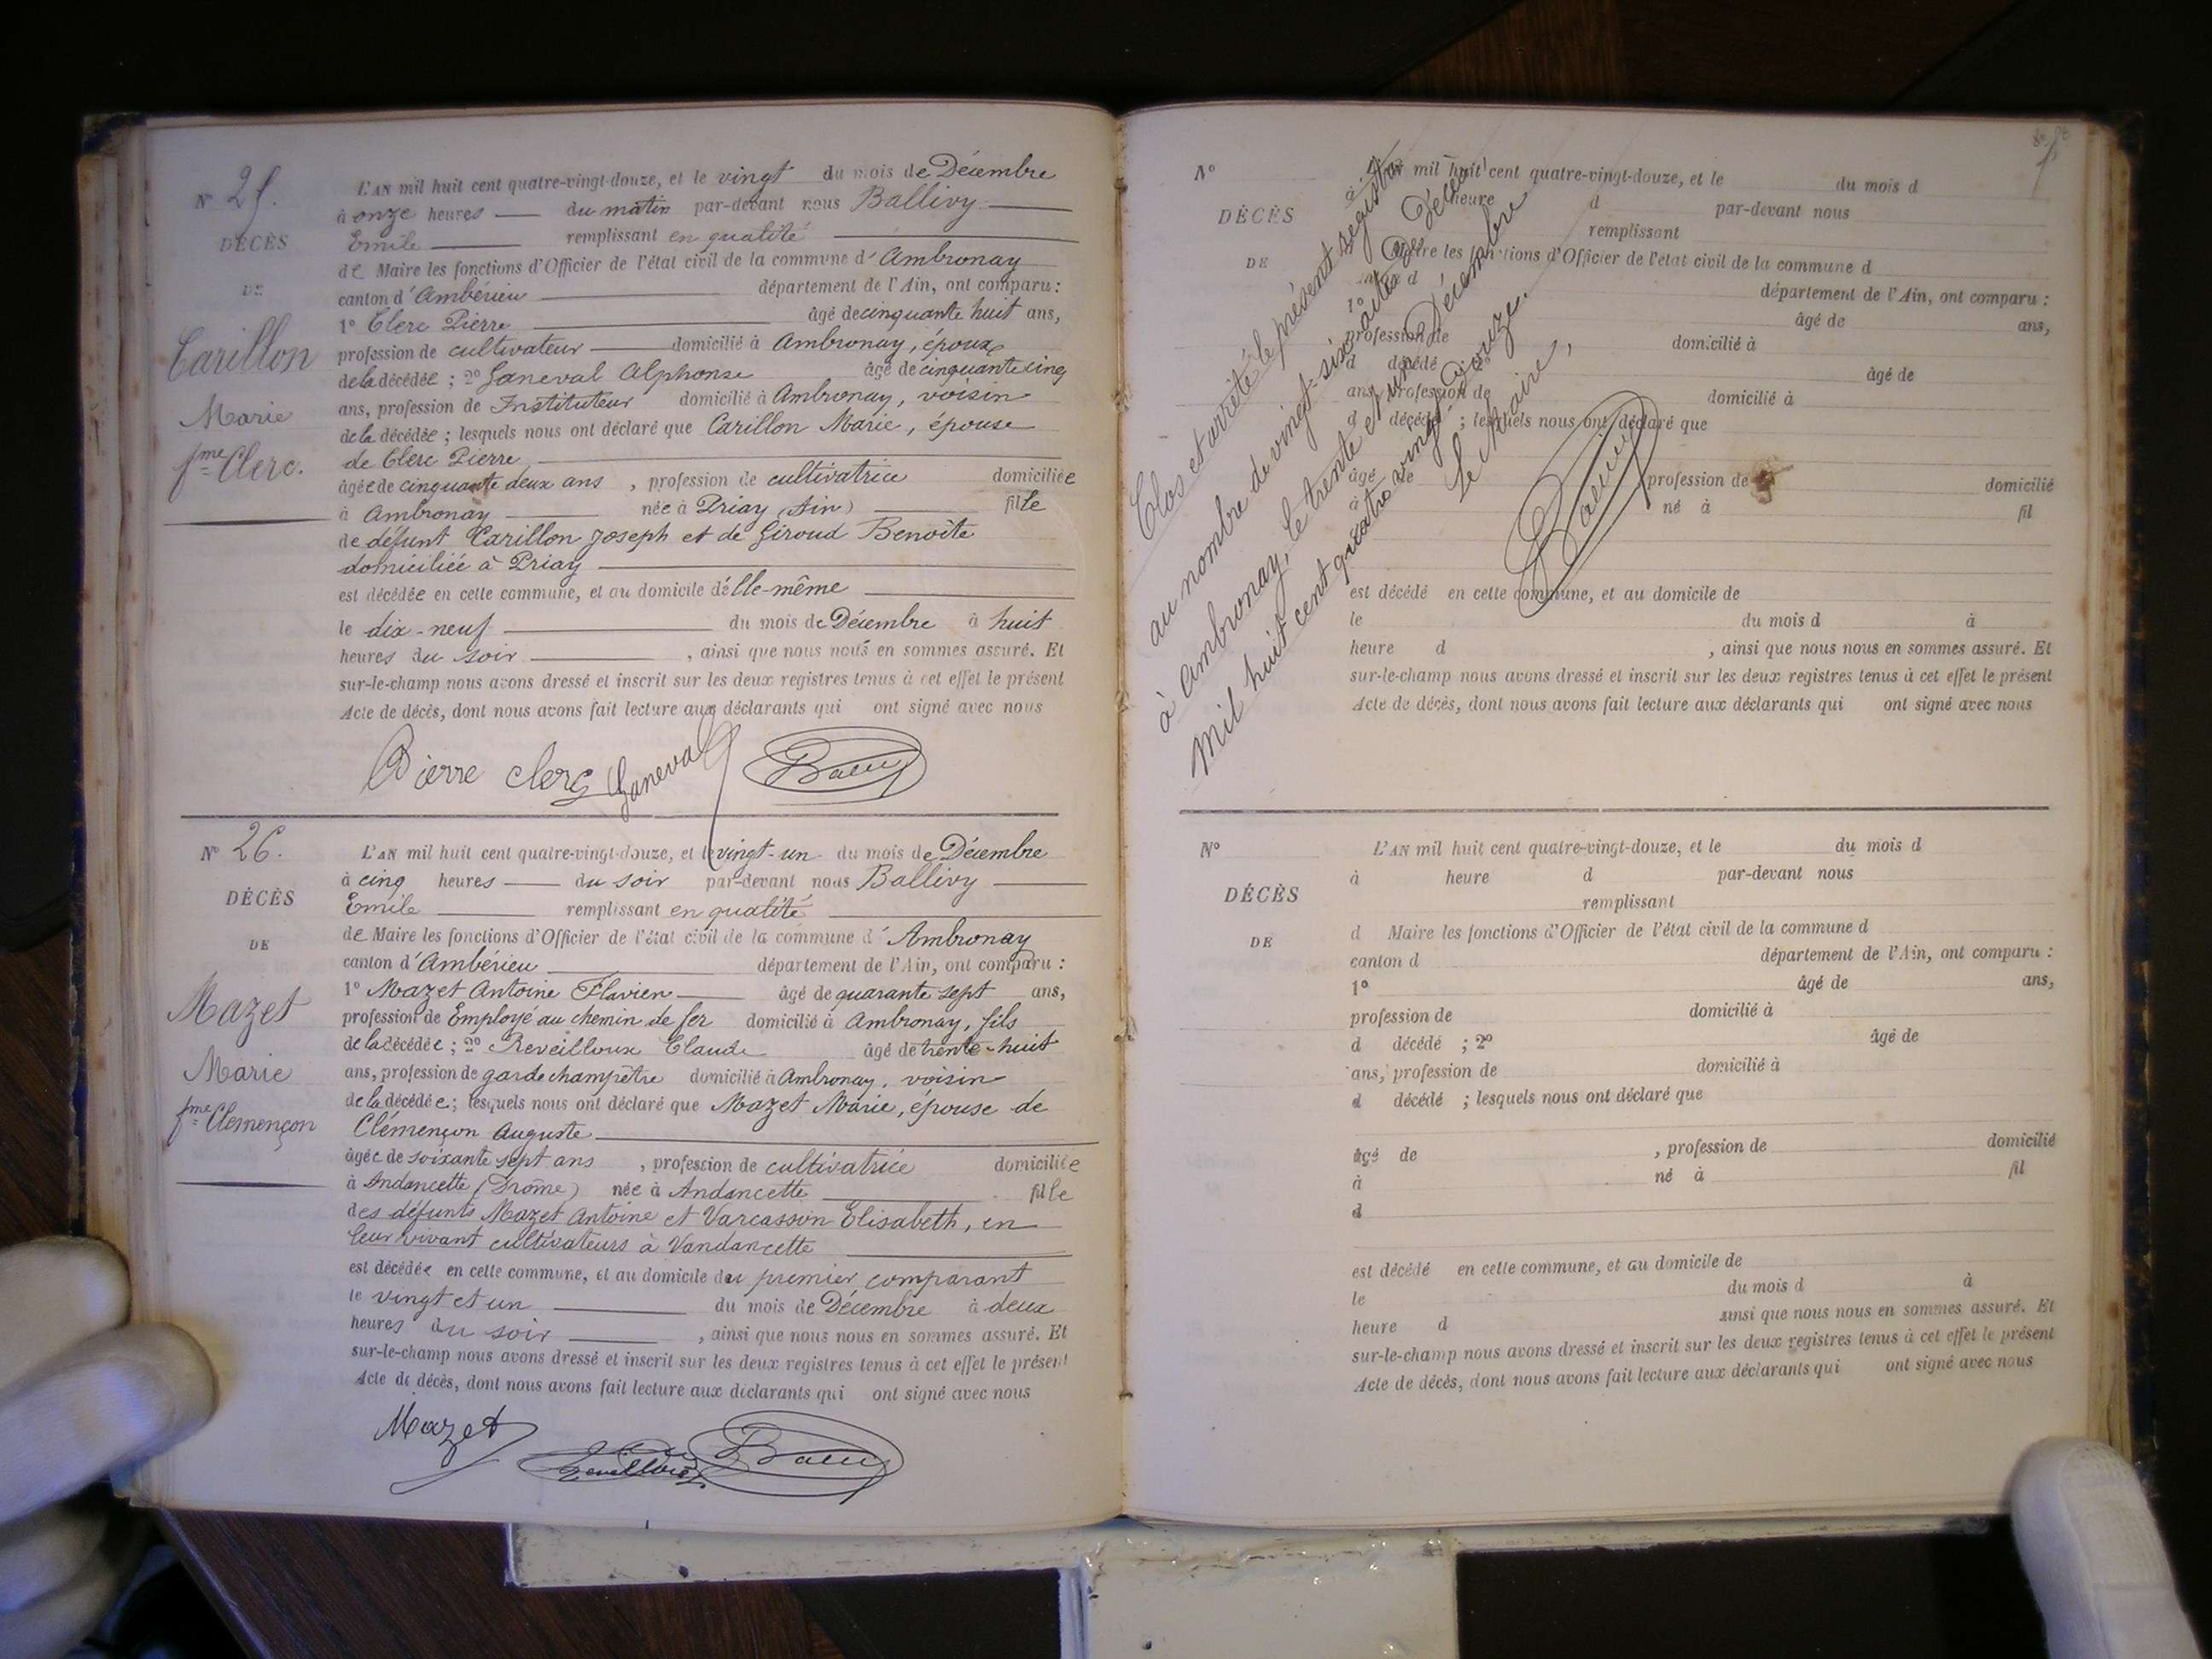 N° 25.
DÉCÈS
DE
Carillon
Marie
fme Clerc.
L'AN mil huit cent quatre-vingt-douze, et le vingt du mois de Décembre
à onze heures du matin par-devant nous Ballivy
Emile remplissant en qualité
de Maire les fonctions d'Officier de l'état civil de la commune d'Ambronay
canton d'Ambérieu département de l'Ain, ont comparu :
1° Clerc Pierre âgé de cinquante huit ans,
profession de cultivateur domicilié à Ambronay, époux
de la décédée ; 2° Janeval Alphonse âgé de cinquante cinq
ans, profession de Instituteur domicilié à Ambronay, voisin
de la décédée ; lesquels nous ont déclaré que Carillon Marie, épouse
de Clerc Pierre
âgée de cinquante deux ans , profession de cultivatrice domiciliée
à Ambronay née à Priay (Ain) fille
de défunt Carillon Joseph et de Giroud Benoîte
domiciliée à Priay
est décédée en cette commune, et au domicile d'elle-même
le dix-neuf du mois de Décembre à huit
heures du soir , ainsi que nous nous en sommes assuré. Et
sur-le-champ nous avons dressé et inscrit sur les deux registres tenus à cet effet le présent
Acte de décès, dont nous avons fait lecture aux déclarants qui ont signé avec nous
Pierre clerc Janeval
N° 26.
DÉCÈS
DE
Mazet
Marie
fme Clémençon
L'AN mil huit cent quatre-vingt-douze, et le vingt-un du mois de Décembre
à cinq heures du soir par-devant nous Ballivy
Emile remplissant en qualité
de Maire les fonctions d'Officier de l'état civil de la commune d'Ambronay
canton d'Ambérieu département de l'Ain, ont comparu :
1° Mazet Antoine Flavien âgé de quarante sept ans,
profession de Employé au chemin de fer domicilié à Ambronay, fils
de la décédée ; 2° Reveilloux Claude âgé de trente-huit
ans, profession de garde champêtre domicilié à Ambronay, voisin
de la décédée ; lesquels nous ont déclaré que Mazet Marie, épouse de
Clémençon Auguste
âgée de soixante sept ans , profession de cultivatrice domiciliée
à Andancette (Drôme) née à Andancette fille
des défunts Mazet Antoine et Varcasson Elisabeth, en
leur vivant cultivateurs à Vandancette
est décédée en cette commune, et au domicile du premier comparant
le vingt et un du mois de Décembre à deux
heures du soir , ainsi que nous nous en sommes assuré. Et
sur-le-champ nous avons dressé et inscrit sur les deux registres tenus à cet effet le présent
Acte de décès, dont nous avons fait lecture aux déclarants qui ont signé avec nous
Mazet
N°
DÉCÈS
DE
L'AN mil huit cent quatre-vingt-douze, et le du mois d
à heure d par-devant nous
remplissant
d Maire les fonctions d'Officier de l'état civil de la commune d
canton d département de l'Ain, ont comparu :
1° âgé de ans,
profession de domicilié à
d décédé âgé de
ans, profession de domicilié à
d décédé ; lesquels nous ont déclaré que
âgé de profession de domicilié
à né à fil
est décédé en cette commune, et au domicile de
le du mois d à
heure d , ainsi que nous nous en sommes assuré. Et
sur-le-champ nous avons dressé et inscrit sur les deux registres tenus à cet effet le présent
Acte de décès, dont nous avons fait lecture aux déclarants qui ont signé avec nous
Clos et arrêté le présent registre
au nombre de vingt-six actes de Décès
à Ambronay, le trente et un Décembre
mil huit cent quatre vingt douze.
Le Maire,
N°
DÉCÈS
DE
L'AN mil huit cent quatre-vingt-douze, et le du mois d
à heure d par-devant nous
remplissant
d Maire les fonctions d'Officier de l'état civil de la commune d
canton d département de l'Ain, ont comparu :
1° âgé de ans,
profession de domicilié à
d décédé ; 2° âgé de
ans, profession de domicilié à
d décédé ; lesquels nous ont déclaré que
âgé de , profession de domicilié
à né à fil
d
est décédé en cette commune, et au domicile de
le du mois d à
heure d ainsi que nous nous en sommes assuré. Et
sur-le-champ nous avons dressé et inscrit sur les deux registres tenus à cet effet le présent
Acte de décès, dont nous avons fait lecture aux déclarants qui ont signé avec nous